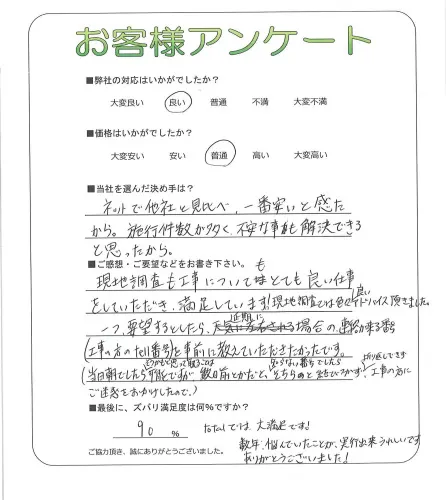 お客様アンケート
■弊社の対応はいかがでしたか?
大変良い 良い 普通 不満 大変不満
■価格はいかがでしたか?
大変安い 安い 普通 高い 大変高い
■当社を選んだ決め手は?
ネットで他社と見比べ、一番安いと感た
から。施行件数が多く、不安な事も解決できる
と思ったから。
■ご感想・ご要望などをお書き下さい。
現地調査も工事についてはとても良い仕事
をしていただき、満足しています!現地調査では色々良いアドバイス頂きました。
一つ、要望するとしたら、天気に左右される場合の連絡が来る番
(工事の方のtel番号)を事前に教えていただきたかったです。
(当日朝でしたら可能ですが、数日前とかだと、
ご迷惑をおかけしたので。)
■最後に、ズバリ満足度は何%ですか?
90 %
大満足です!
数年、悩んでいたことが、実行出来うれしいです
ありがとうございました!
ご協力頂き、誠にありがとうございました。